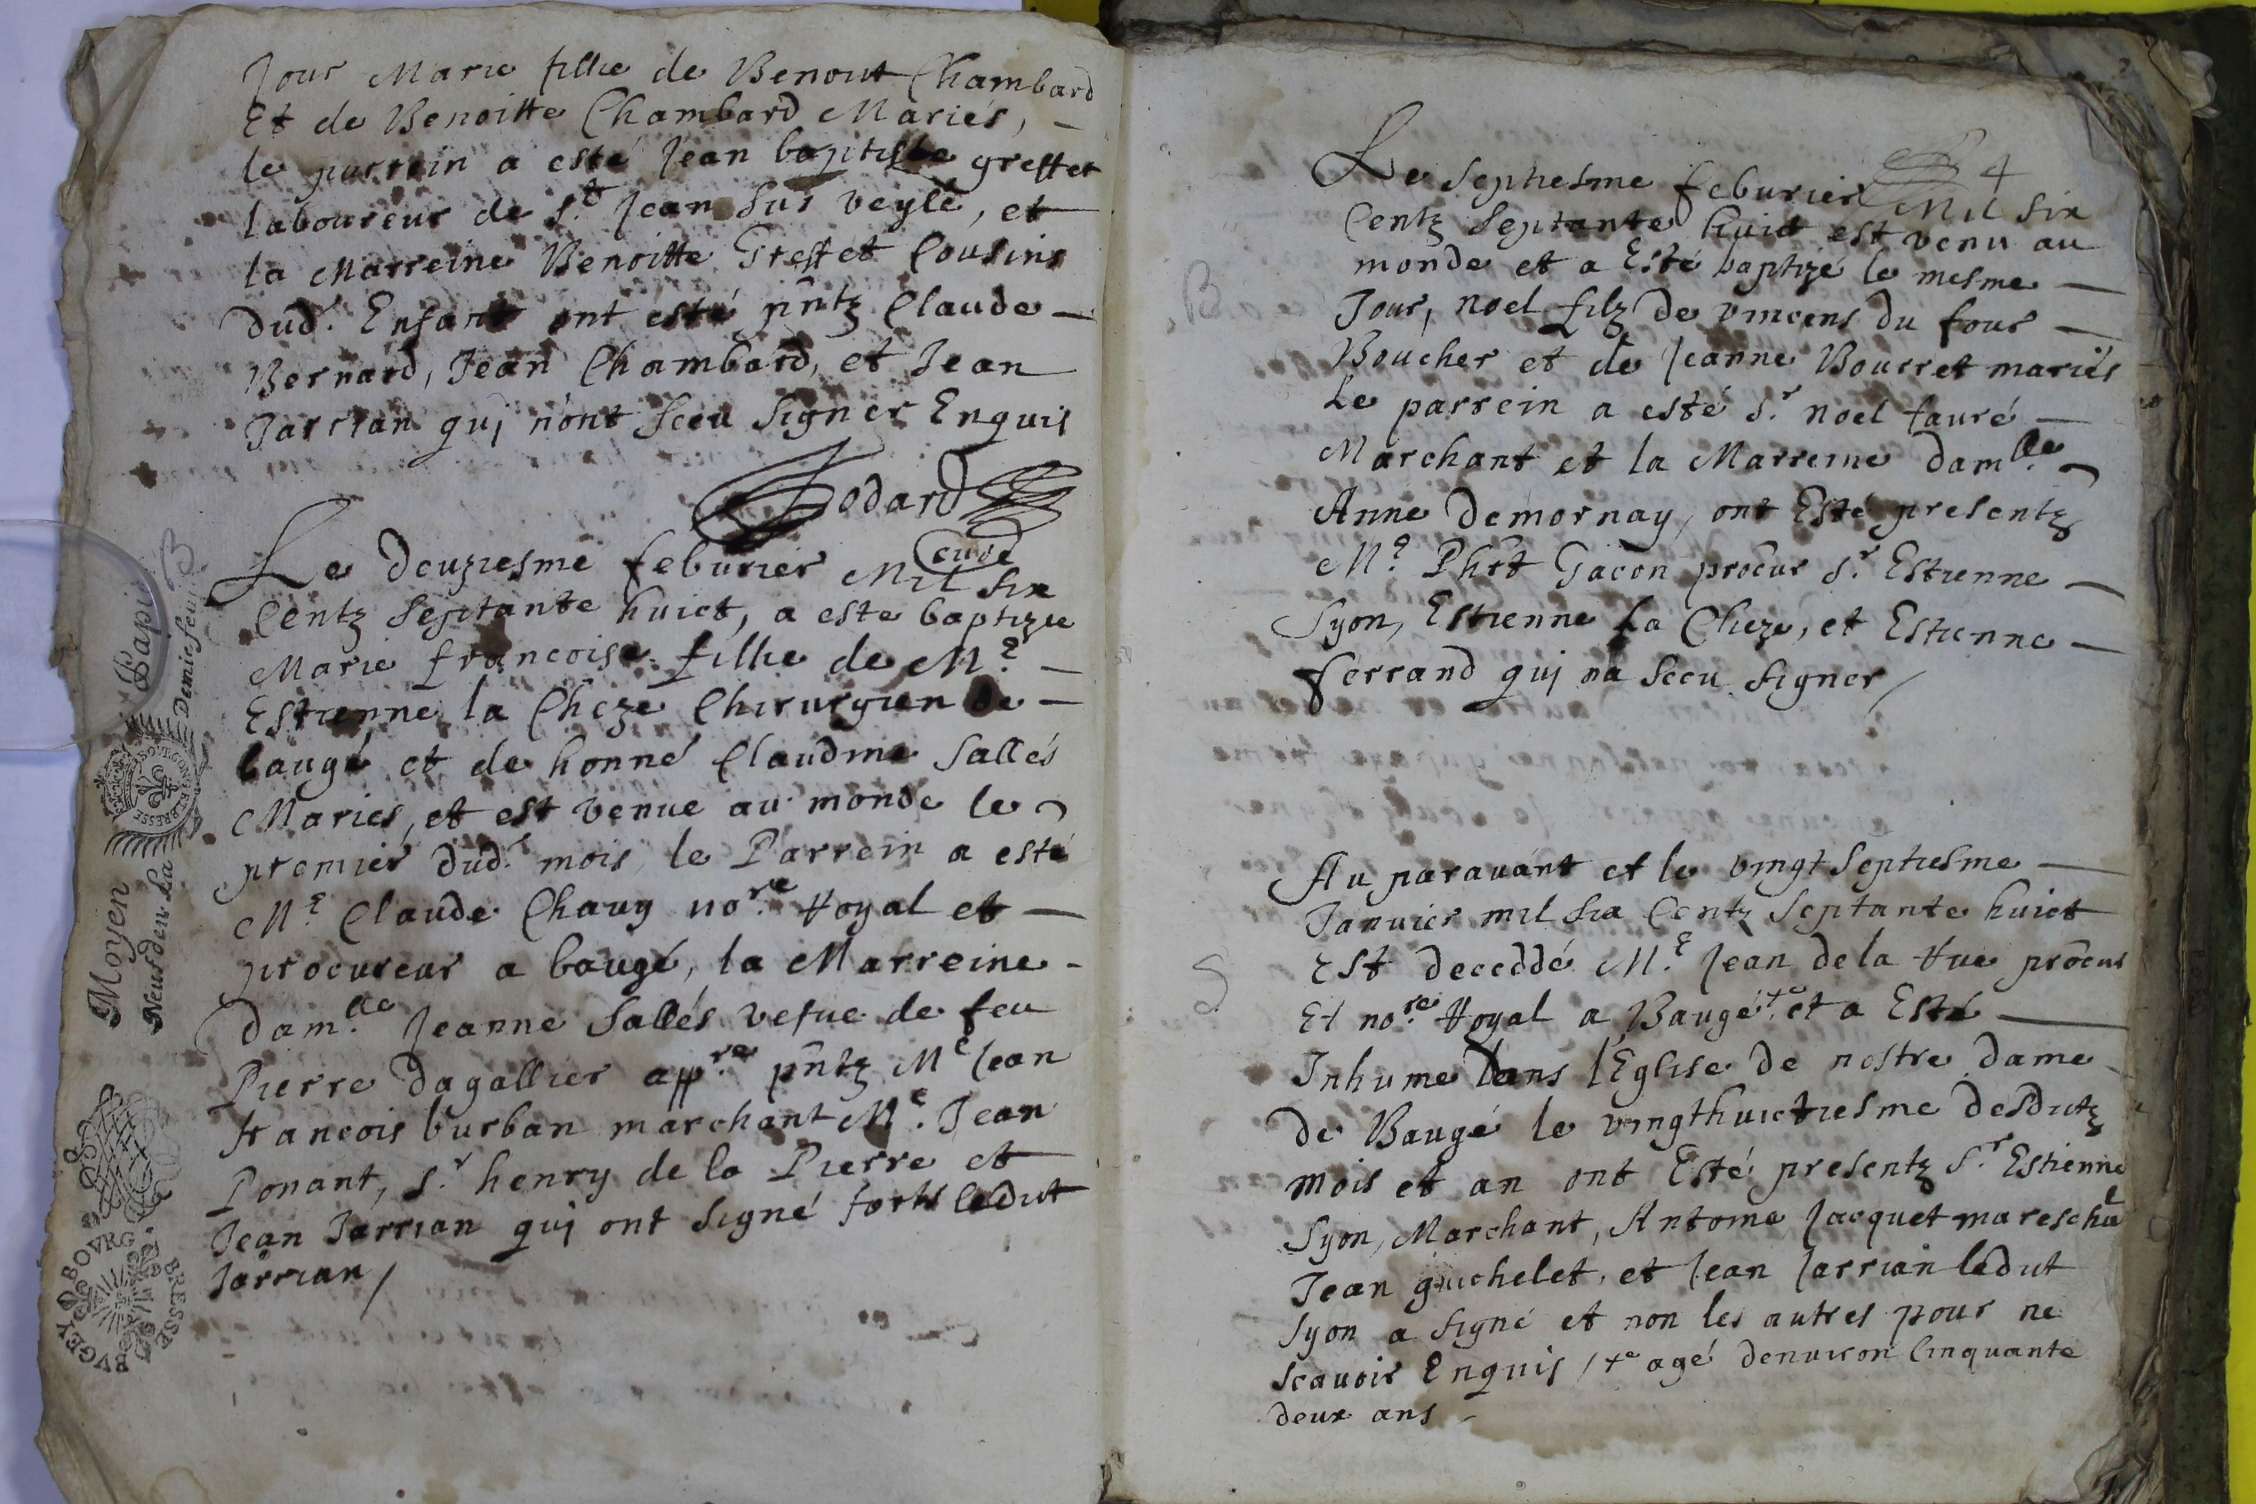 Jour Marie fillie de Benoict Chambard
Et de Benoitte Chambard Mariés,
le parrein a esté Jean baptiste greffet
laboureur de St. Jean sus veyle, et
la Marreine Benoitte Greffet Cousins
dud. Enfant ont esté pñtz Claude
Bernard, Jean Chambard, et Jean
Jarrian qui n'ont sceu signer Enquis
Godard
curé
B
Le deuziesme feburier Mil six
Centz septante huict, a este baptizee
Marie francoise fillie de Me.
Estienne la Cheze Chirurgien de
baugé et de honne Claudine Sallés
Mariés, et est venue au monde le
premier dud. mois, le Parrein a esté
Me. Claude Chavy nore. Royal et
procureur a baugé, la Marreine
damlle. Jeanne Sallés vefue de feu
Pierre dagallier appre. pñtz Me Jean
francois burban marchant Me. Jean
Ponant, Sr henry de la Pierre et
Jean Jarrian qui ont signé forts ledit
Jarrian /
Moyen Papier
Neuf den. La Demie feuil
BOVRG BRESSE BVGEY
4
B
Le septiesme feburier Mil six
Centz septante huict est venu au
monde et a Esté baptizé le mesme
Jour, noel filz de vincens du four
Boucher et de Jeanne Bourret mariés
Le parrein a esté Sr. noel fauré
Marchant et la Marreine damlle.
Anne demornay, ont Esté presentz
Me. Phrt Gacon procur Sr. Estienne
Syon, Estienne la Cheze, et Estienne
ferrand qui na sceu signer /
S
Au paravant et le vingt septiesme
Januier mil six Centz septante huict
Est deceddé Me. Jean de la Rue procur
Et nore. Royal a Baugé +e et a Esté
Inhume dans l'Eglise de nostre dame
de Baugé le vingthuictiesme desditz
mois et an ont Esté presentz Sr. Estienne
Syon, Marchant, Antoine Jacquet mareschal
Jean guichelet, et Jean Jarrian ledit
Syon a signé et non les autres pour ne
scavoir Enquis / +e agé denviron Cinquante
deux ans